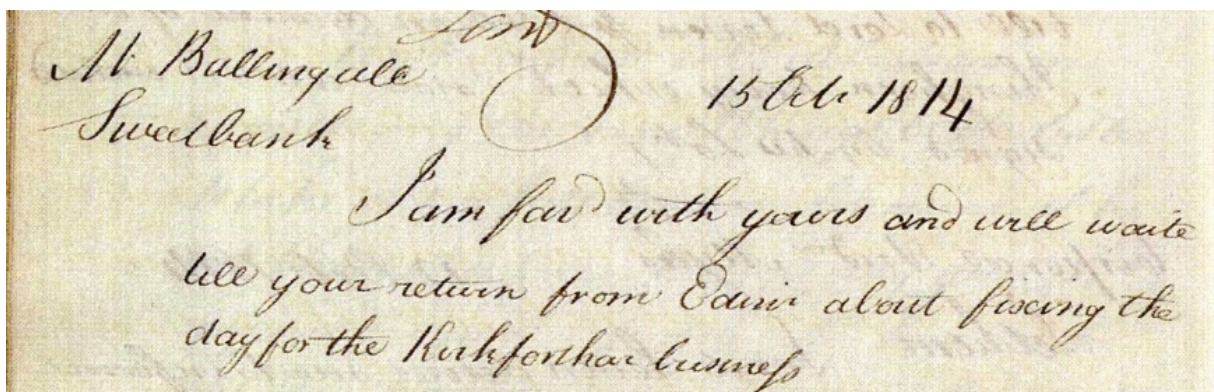 Mr Ballingall
Sweetbank
15 Octr 1814
I am favd with yours and will waite
till your return from Edinr about fixing the
day for the Kirkforthar business